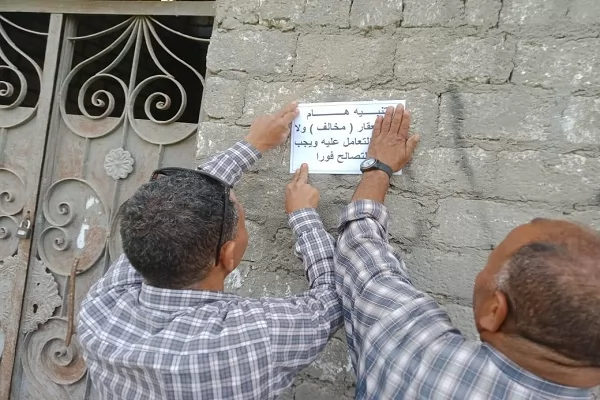 تنبيه هـــام
عقار ( مخالف ) ولا
التعامل عليه ويجب
التصالح فورا